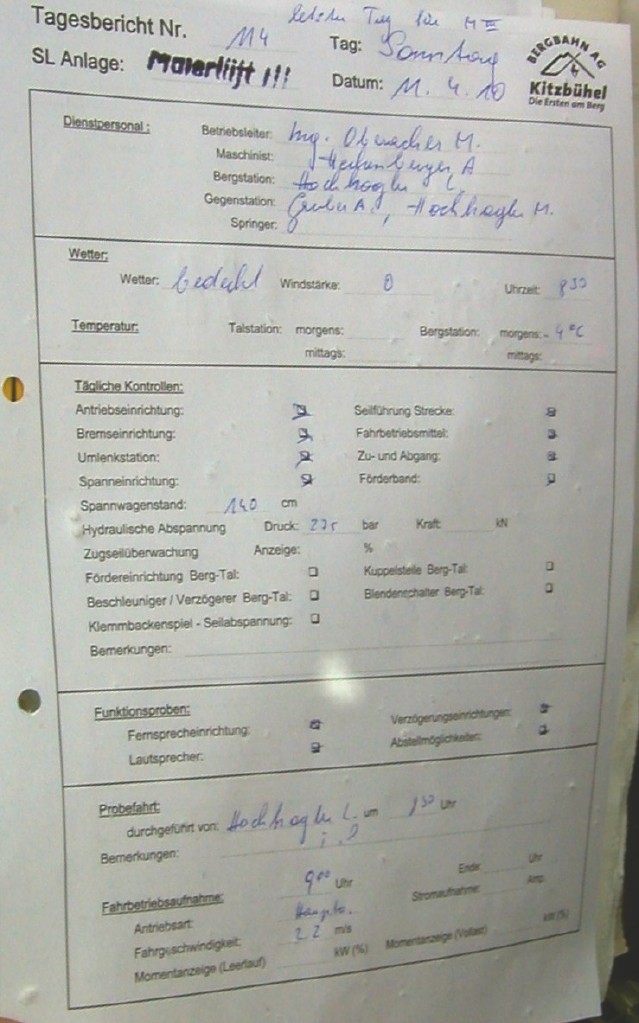 letzter Tag für M III
Tagesbericht Nr. 114 Tag: Sonntag
SL Anlage: Maierllift !!! Datum: 11. 4. 10
BERGBAHN AG
Kitzbühel
Die Ersten am Berg
Dienstpersonal: Betriebsleiter: Ing. M.
Maschinist: A
Bergstation: Hochkogler L.
Gegenstation: Gruber A., Hochkogler M.
Springer:
Wetter:
Wetter: bedeckt Windstärke: 0 Uhrzeit: 8 30
Temperatur: Talstation: morgens: Bergstation: morgens: - 4 °C
mittags: mittags:
Tägliche Kontrollen:
Antriebseinrichtung: Seilführung Strecke:
Bremseinrichtung: Fahrbetriebsmittel:
Umlenkstation: Zu- und Abgang:
Spanneinrichtung: Förderband:
Spannwagenstand: 140 cm
Hydraulische Abspannung Druck: bar Kraft: kN
Zugseilüberwachung Anzeige: %
Fördereinrichtung Berg-Tal: Kuppelstelle Berg-Tal:
Beschleuniger / Verzögerer Berg-Tal: Blendenschalter Berg-Tal:
Klemmbackenspiel - Seilabspannung:
Bemerkungen:
Funktionsproben:
Fernsprecheinrichtung: Verzögerungseinrichtungen:
Lautsprecher: Abstellmöglichkeiten:
Probefahrt:
durchgeführt von: Hochkogler L. um 8 30 Uhr
Bemerkungen: i. O
Fahrbetriebsaufnahme: 9 00 Uhr Ende: Uhr
Antriebsart: Stromaufnahme: Amp
Fahrgeschwindigkeit: 2.2 m/s
Momentanzeige (Leerlauf) kW (%) Momentanzeige (Vollast) kW (%)